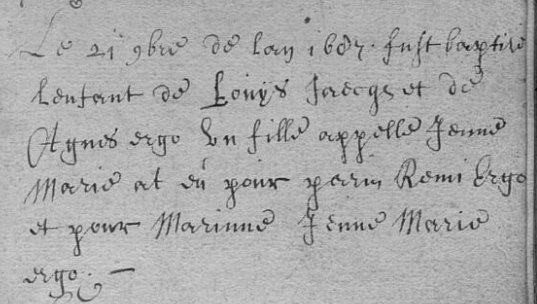 Le 21 9bre de lan 1687 fust baptisé
Lenfant de Louÿs Jaecqs et de
Agnes ergo un fille appelle Jenne
Marie at eü pour parin Remi Ergo
et pour Marinne Jenne Marie
ergo. —